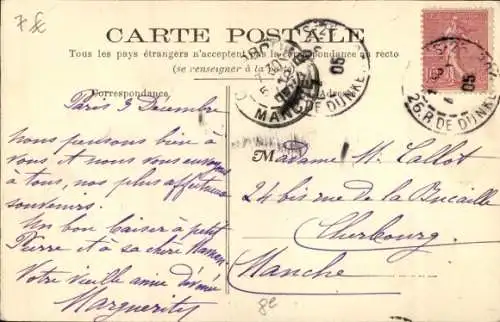 7 fc
CARTE POSTALE
Tous les pays étrangers n'acceptent pas la correspondance au recto
(se renseigner à la
Correspondance
Adresse
05
MANCHE
26. R DE DUNKE
05
Paris 3 Décembre
Nous pensons bien à
vous et nous vous envoyons
à tous, nos plus affectueux
souvenirs.
Un bon baiser à petit
Pierre et à sa chère Maman.
Votre vieille amie dévouée
Marguerite
Madame M. Callot
24 bis rue de la Bucaille
Cherbourg
Manche
8e